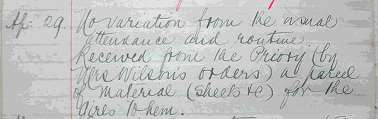 Ap. 29. No variation from the usual
attendance and routine.
Received from the Priory (by
Mrs Wilson's orders) a parcel
of Material (Sheets &c) for the
Girls to hem.